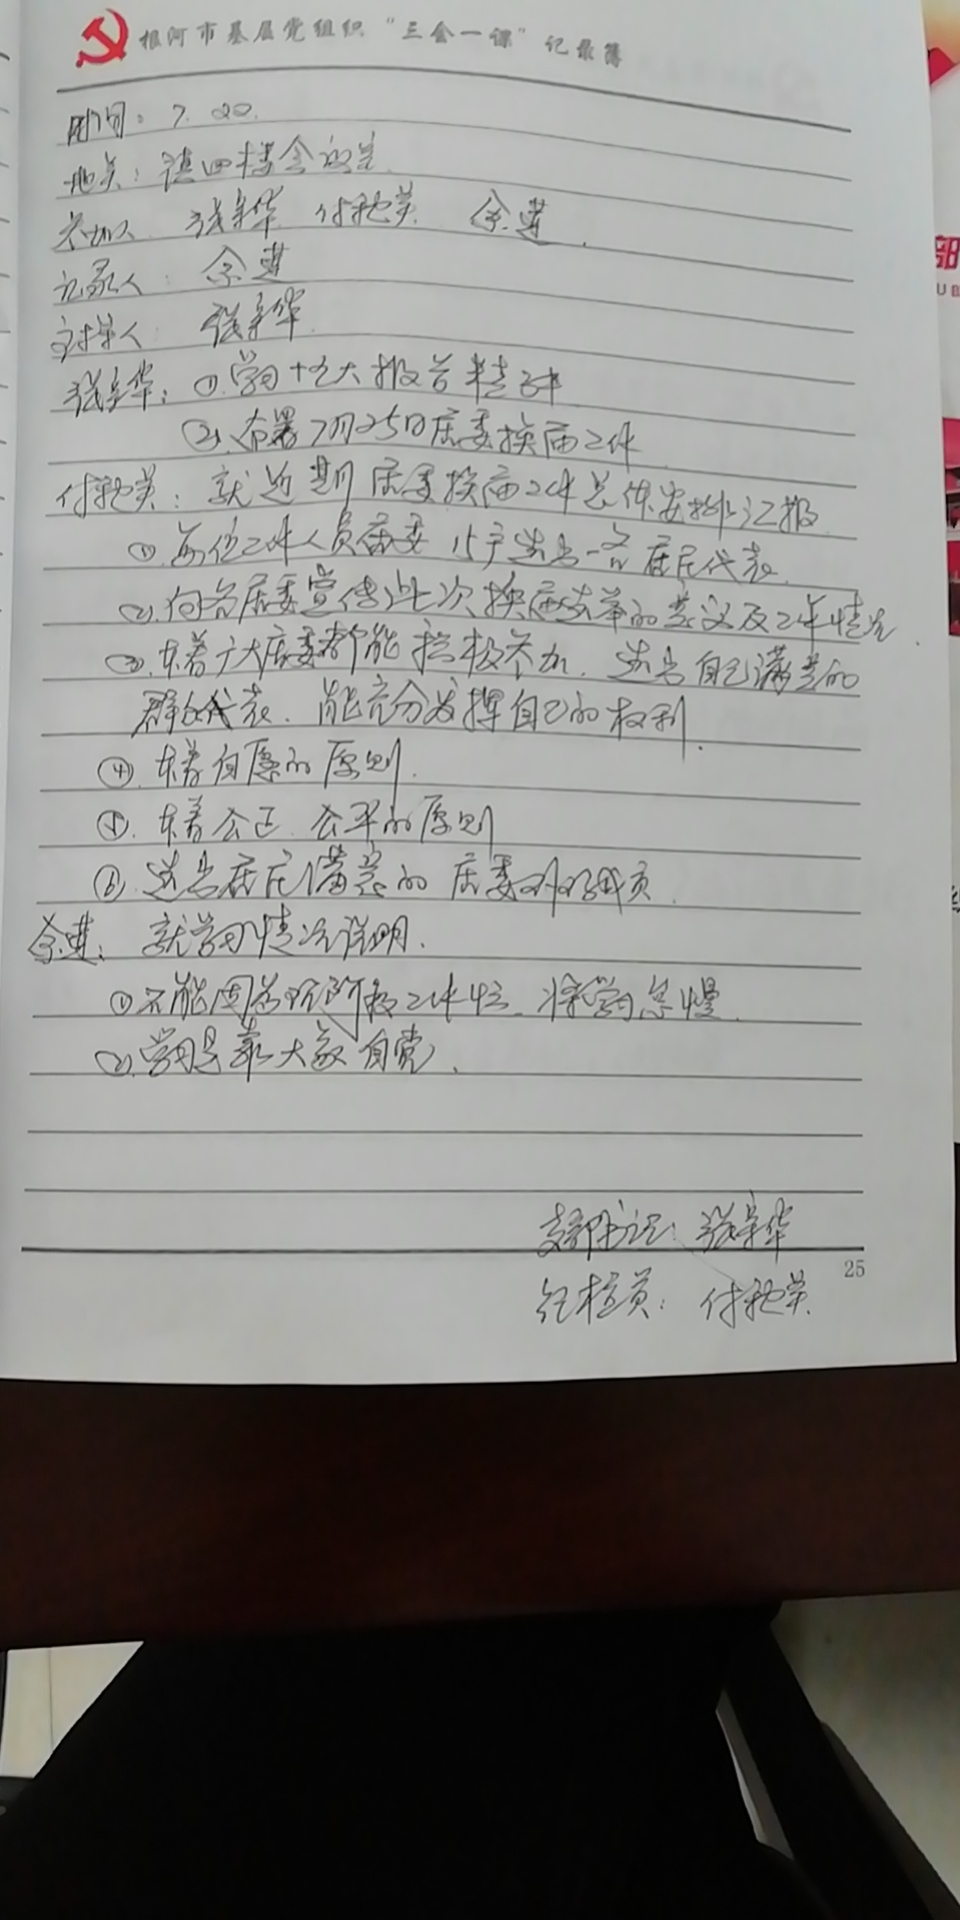 根河市基层党组织“三会一课”记录簿
时间：7. 20.
地点：镇四楼会议室
参加人 张新华 付艳英 余莲.
记录人：余莲
主持人：张新华
张新华：①学习十九大报告精神
②布署7月25日居委换届工作
付艳英：就近期居委换届工作总体安排汇报
①每位工作人员居委 15户选出一名居民代表.
②向各居委宣传此次换届选举的意义及工作情况.
③本着广大居委都能积极参加，选出自己满意的
群众代表. 能充分发挥自己的权利.
④本着自愿的原则.
⑤本着公正、公平的原则
⑥选出居民满意的居委成员.
余莲：就学习情况说明.
①不能因为现阶段工作忙、将学习怠慢.
②学习是靠大家自觉.
支部书记：张新华
25
纪检员：付艳英
部
UB